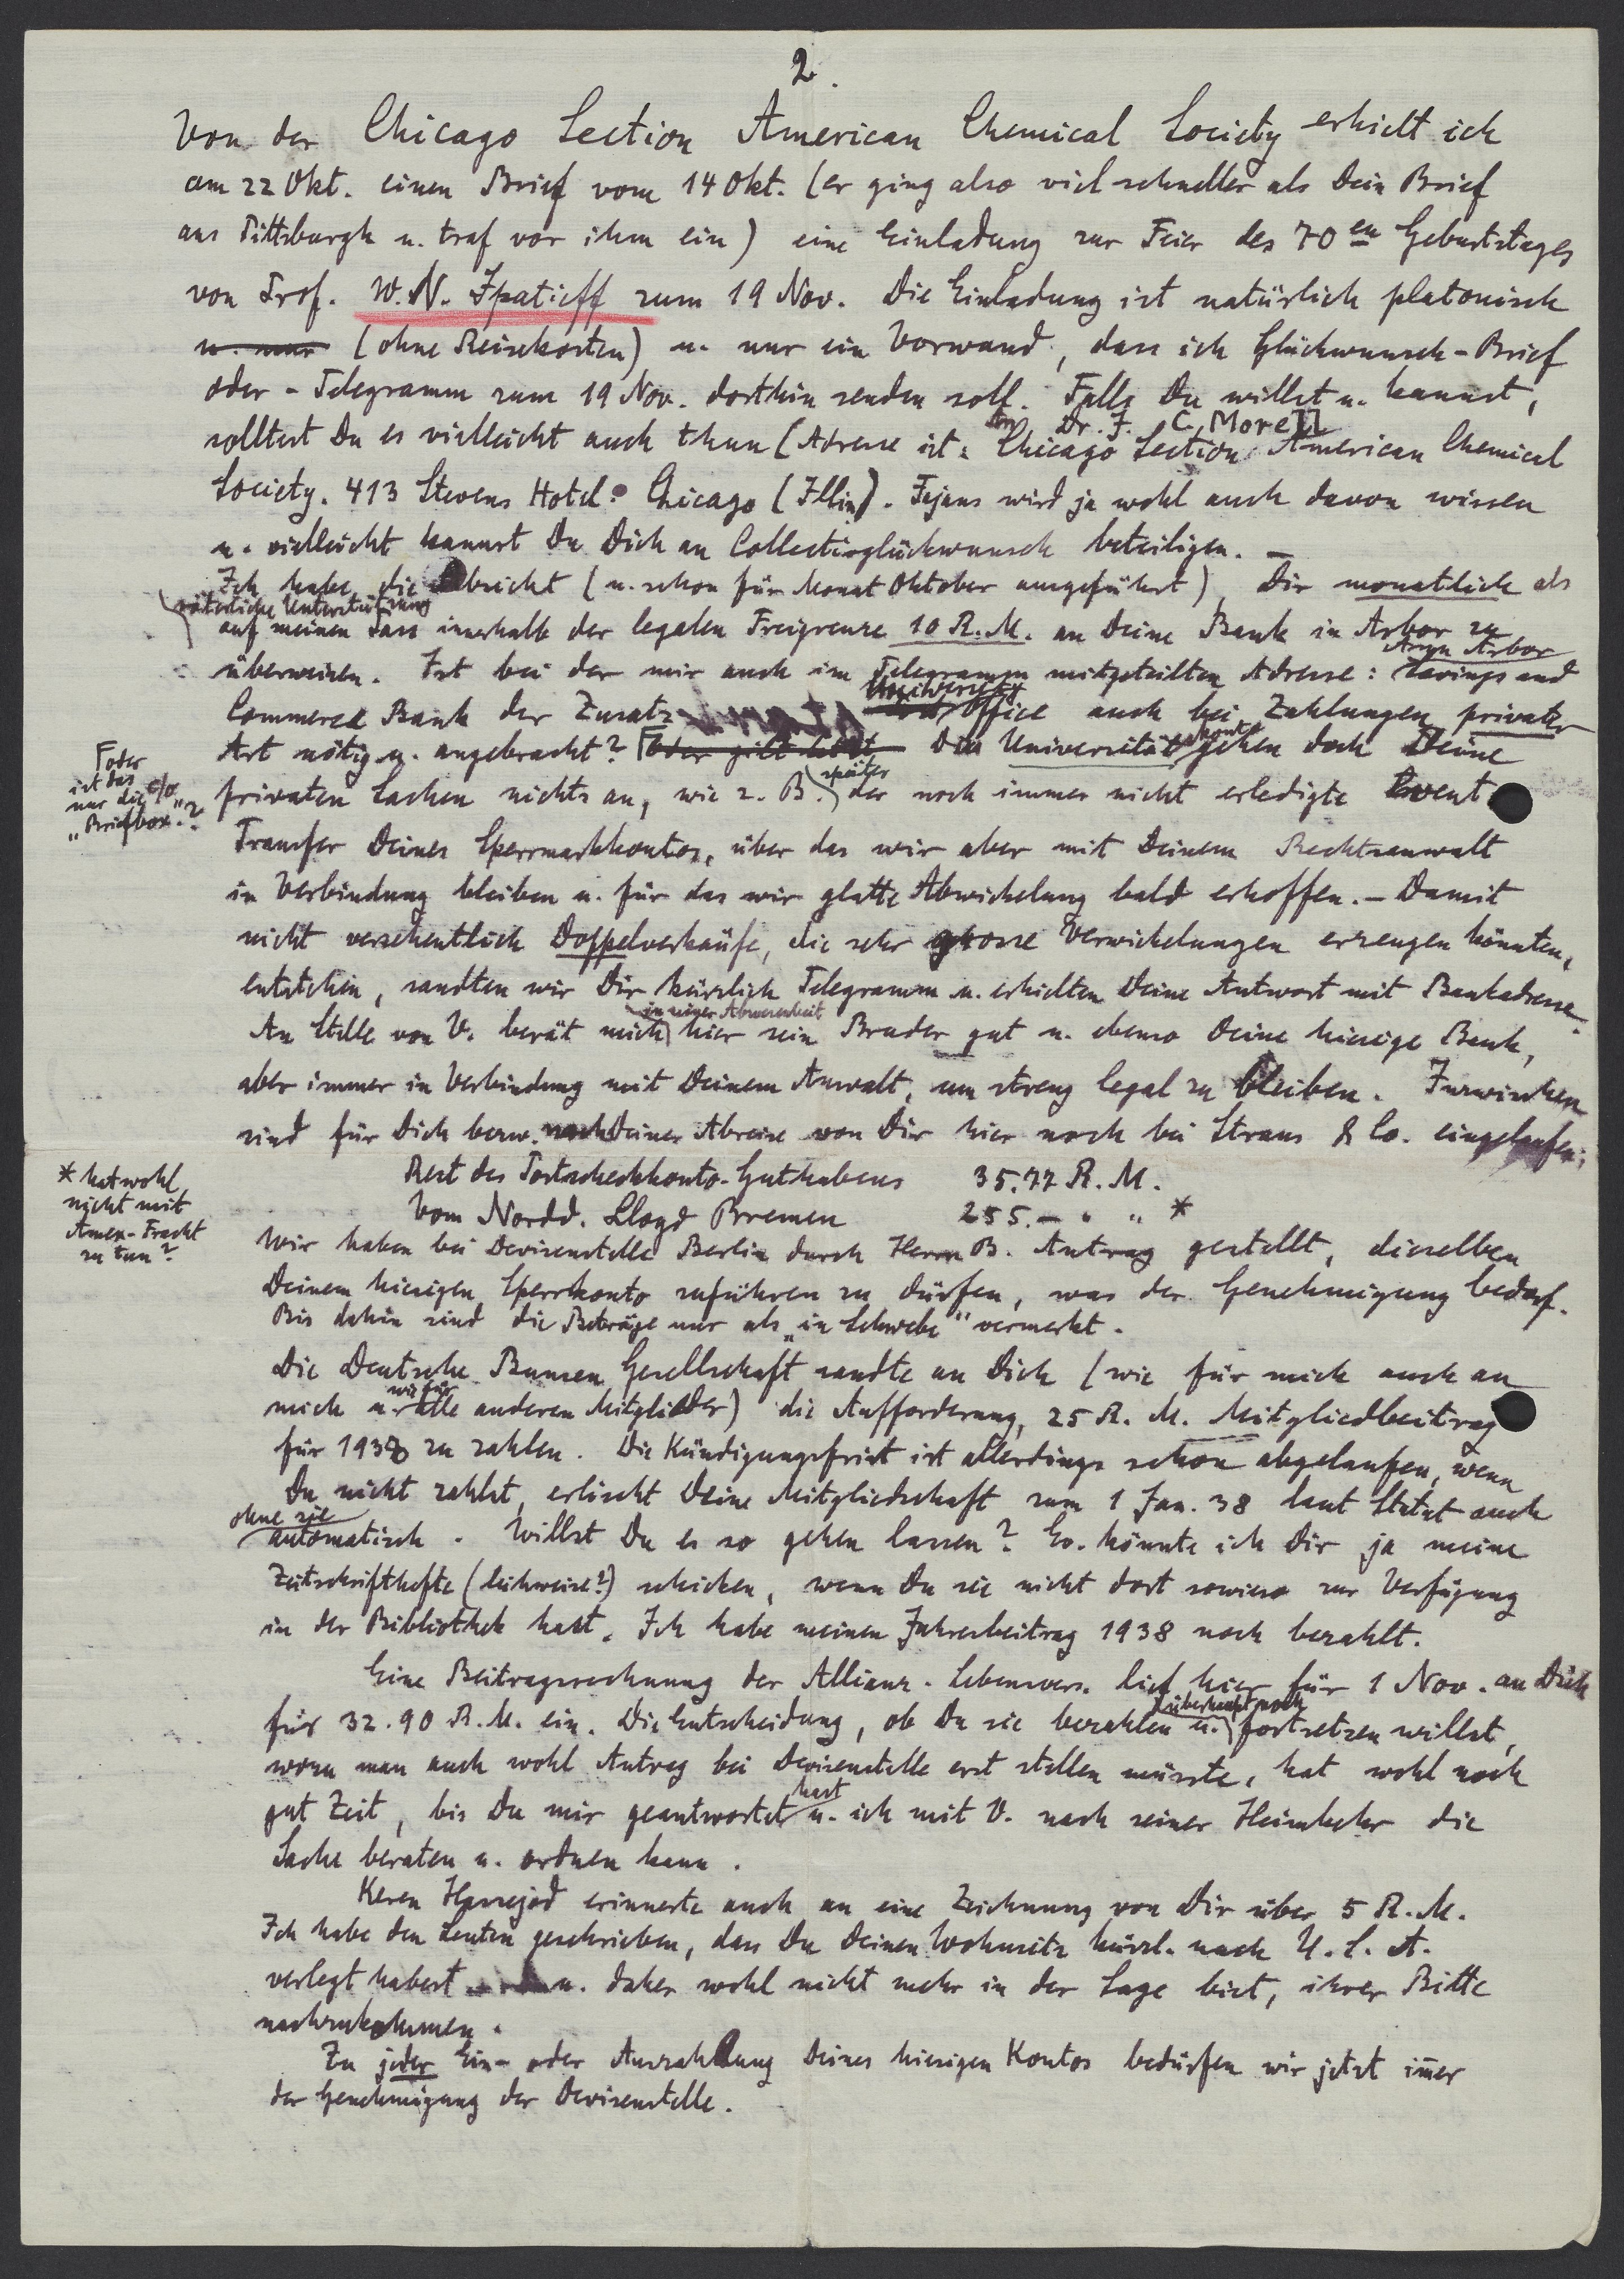 2.
Von der Chicago Section American Chemical Society erhielt ich
am 22 Okt. einen Brief vom 14 Okt. (er ging also viel schneller als Dein Brief
aus Pittsburgh u. traf vor ihm ein) eine Einladung zur Feier des 70en Geburtstages
von Prof. W. N. Ipatieff zum 19 Nov. Die Einladung ist natürlich platonisch
u. nur (ohne Reisekosten) u. nur ein Vorwand, dass ich Glückwunsch-Brief
oder - Telegramm zum 19 Nov. dorthin senden soll. Falls Du willst u. kannst,
An Dr. J. C. Morell
solltest Du es vielleicht auch thun (Adresse ist: Chicago Section American Chemical
Society. 413 Stevens Hotel. Chicago (Illin). Fajans wird ja wohl auch davon wissen
u. vielleicht kannst Du Dich an Collectivglückwunsch beteiligen. —
Ich habe die Absicht (u. schon für Monat Oktober ausgeführt), Dir monatlich als
väterliche Unterstützung
auf meinen Pass innerhalb der legalen Freigrenze 10 R. M. an Deine Bank in Arbor zu
Ann Arbor
überweisen. Ist bei der mir auch im Telegramm mitgeteilten Adresse: Savings and
University
Commerce Bank der Zusatz Office auch bei Zahlungen privater
Art nötig u. angebracht? Γ oder gilt Die Universität gehen doch Deine
sonst
Γ oder
ist das
nur die c/o
"Briefbox."?
später
privaten Sachen nichts an, wie z. B. der noch immer nicht erledigte Event.
Transfer Deines Sperrmarkkontos, über das wir aber mit Deinem Rechtsanwalt
in Verbindung bleiben u. für das wir glatte Abwickelung bald erhoffen. — Damit
nicht versehentlich Doppelverkäufe, die sehr grosse Verwickelungen erzeugen könnten,
entstehen, sandten wir Dir kürzlich Telegramm u. erhielten Deine Antwort mit Bankadresse.
in seiner Abwesenheit
An Stelle von V. berät mich hier sein Bruder gut u. ebenso Deine hiesige Bank,
aber immer in Verbindung mit Deinem Anwalt, um streng legal zu bleiben. Inzwischen
sind für Dich bezw. nach Deiner Abreise von Dir hier noch bei Straus & Co. eingelaufen:
Rest des Postscheckkonto-Guthabens 35.77 R. M.
Vom Nordd. Lloyd Bremen 255.— " " *
* hat wohl
nicht mit
Amex-Fracht
zu tun?
Wir haben bei Devisenstelle Berlin durch Herrn B. Antrag gestellt, dieselben
Deinem hiesigen Sperrkonto zuführen zu dürfen, was der Genehmigung bedarf.
Bis dahin sind die Beträge nur als "in Schwebe" vermerkt.
Die Deutsche Bunsen Gesellschaft sandte an Dich (wie für mich auch an
wie für
mich u. alle anderen Mitglieder) die Aufforderung, 25 R. M. Mitgliedbeitrag
für 1938 zu zahlen. Die Kündigungsfrist ist allerdings schon abgelaufen, wenn
Du nicht zahlst, erlischt Deine Mitgliedschaft zum 1 Jan. 38 laut Statut auch
ohne sie
automatisch. Willst Du es so gehen lassen? Ev. könnte ich Dir ja meine
Zeitschrifthefte (leihweise?) schicken, wenn Du sie nicht dort sowieso zur Verfügung
in der Bibliothek hast. Ich habe meinen Jahresbeitrag 1938 noch bezahlt.
Eine Beitragsrechnung der Allianz-Lebensvers. lief hier für 1 Nov. an Dich
überhaupt noch
für 32.90 R. M. ein. Die Entscheidung, ob Du sie bezahlen u. fortsetzen willst,
wozu man auch wohl Antrag bei Devisenstelle erst stellen müsste, hat wohl noch
hast
gut Zeit, bis Du mir geantwortet u. ich mit V. nach seiner Heimkehr die
Sache beraten u. ordnen kann.
Keren Hajessod erinnerte auch an eine Zeichnung von Dir über 5 R. M.
Ich habe den Leuten geschrieben, dass Du Deinen Wohnsitz kürzl. nach U. S. A.
verlegt habest u. daher wohl nicht mehr in der Lage bist, ihrer Bitte
nachzukommen.
Zu jeder Ein- oder Auszahlung Deines hiesigen Kontos bedürfen wir jetzt im̄er
der Genehmigung der Devisenstelle.